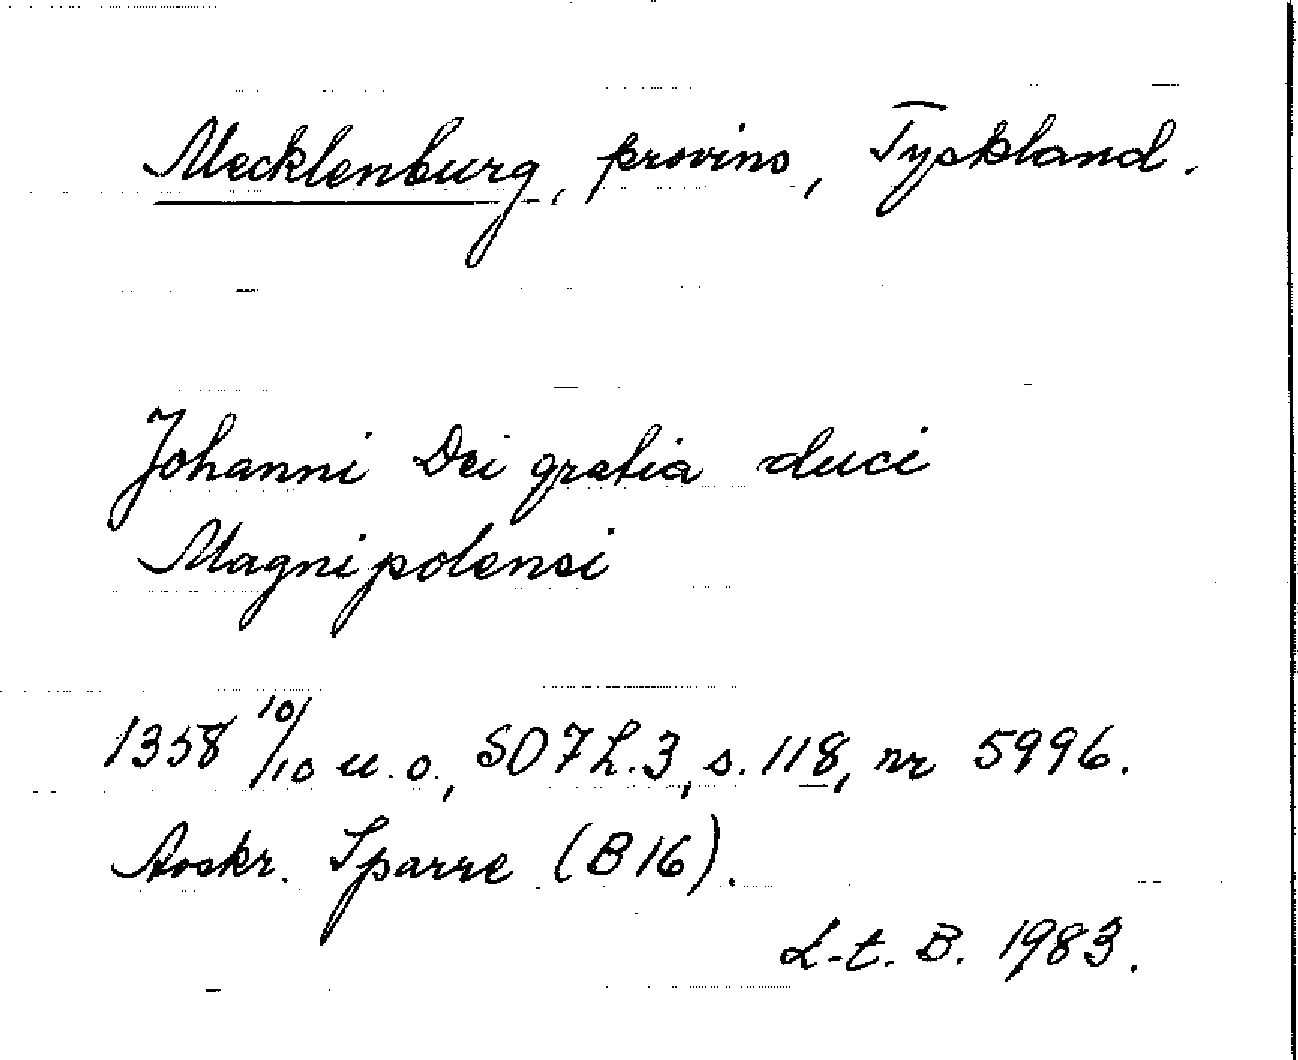 Mecklenburg, provins, Tyskland.
Johanni Dei gratia duci
Magnipolensi
1358 10/10 u.o., SD 7 h.3, s. 118, nr 5996.
Avskr. Sparre (B 16).
L-t. B. 1983.